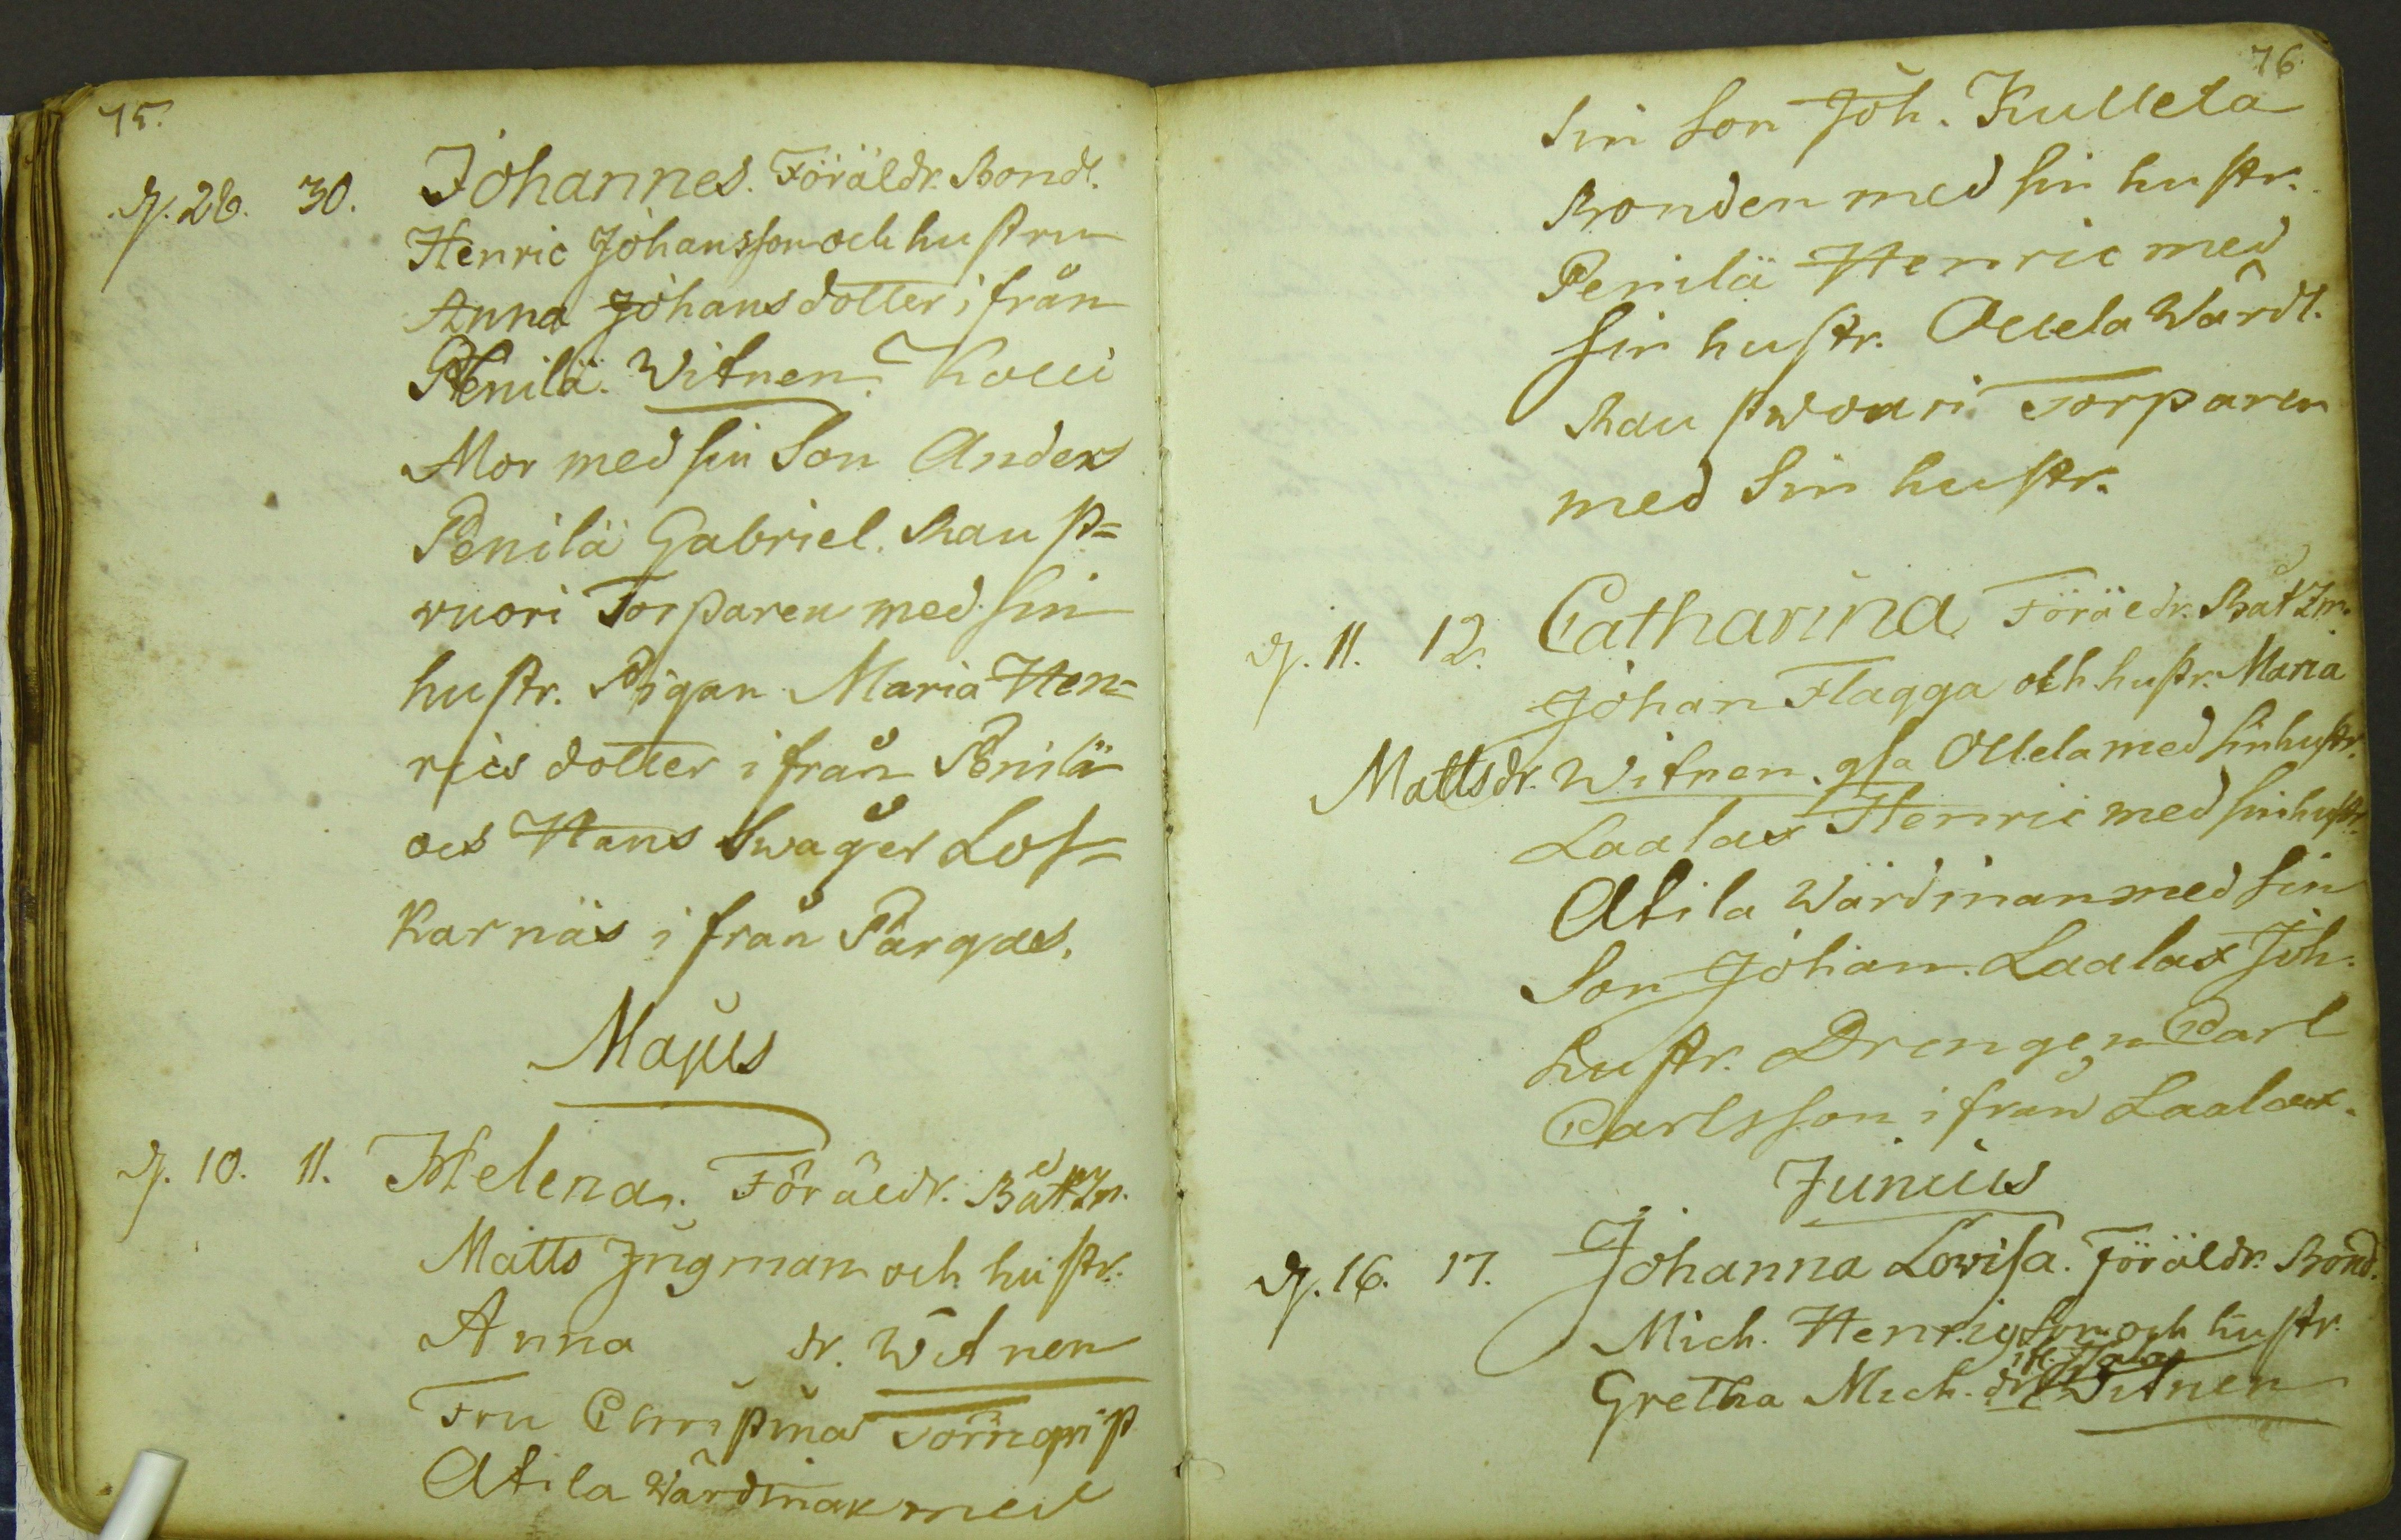 75.
d. 28. 30. Johannes. Föräldr. Bond.
Henric Johansson och hustru
Anna Johans dotter ifrån
Penilä. Witnen. Kolli
Mor med sin Son Anders
Penilä Gabriel. Raust=
vuori Torparen med sin
hustr. Pigan Maria Hen=
rics dotter ifrån Penilä
och Hans Swåger Lof=
karnäs ifrån Pargas.
Majus
d. 10. 11. Helena. Föräldr. Båtzm.
Matts Jugman och hustr.
Anna dr. Witnen
Fru Christina Törngrist
Atila Wärdinan med
76.
Sin Son Joh. Kulleta
Bonden med sin hustr.
Penilä Henric med
sin hustr. Ollela Wärdt.
Raustwouri Torparen
med Sin hustr.
d. 11. 12. Catharina. Föräldr. Båtzm.
Johan Flagga och hustr. Maria
Mattsdr. Witnen. gla Ollela med sin hustr.
Laalax Henric med sin hustr.
Atila Wärdinan med sin
Son Johan. Laalax Joh.
hustr. Drengen Carl
Carlsson ifrån Laalax.
Junius
d. 16. 17. Johanna Lovisa. Föräldr. Bond.
Mich. Henrigson och hustr.
Gretha Mich. dr. Witnen